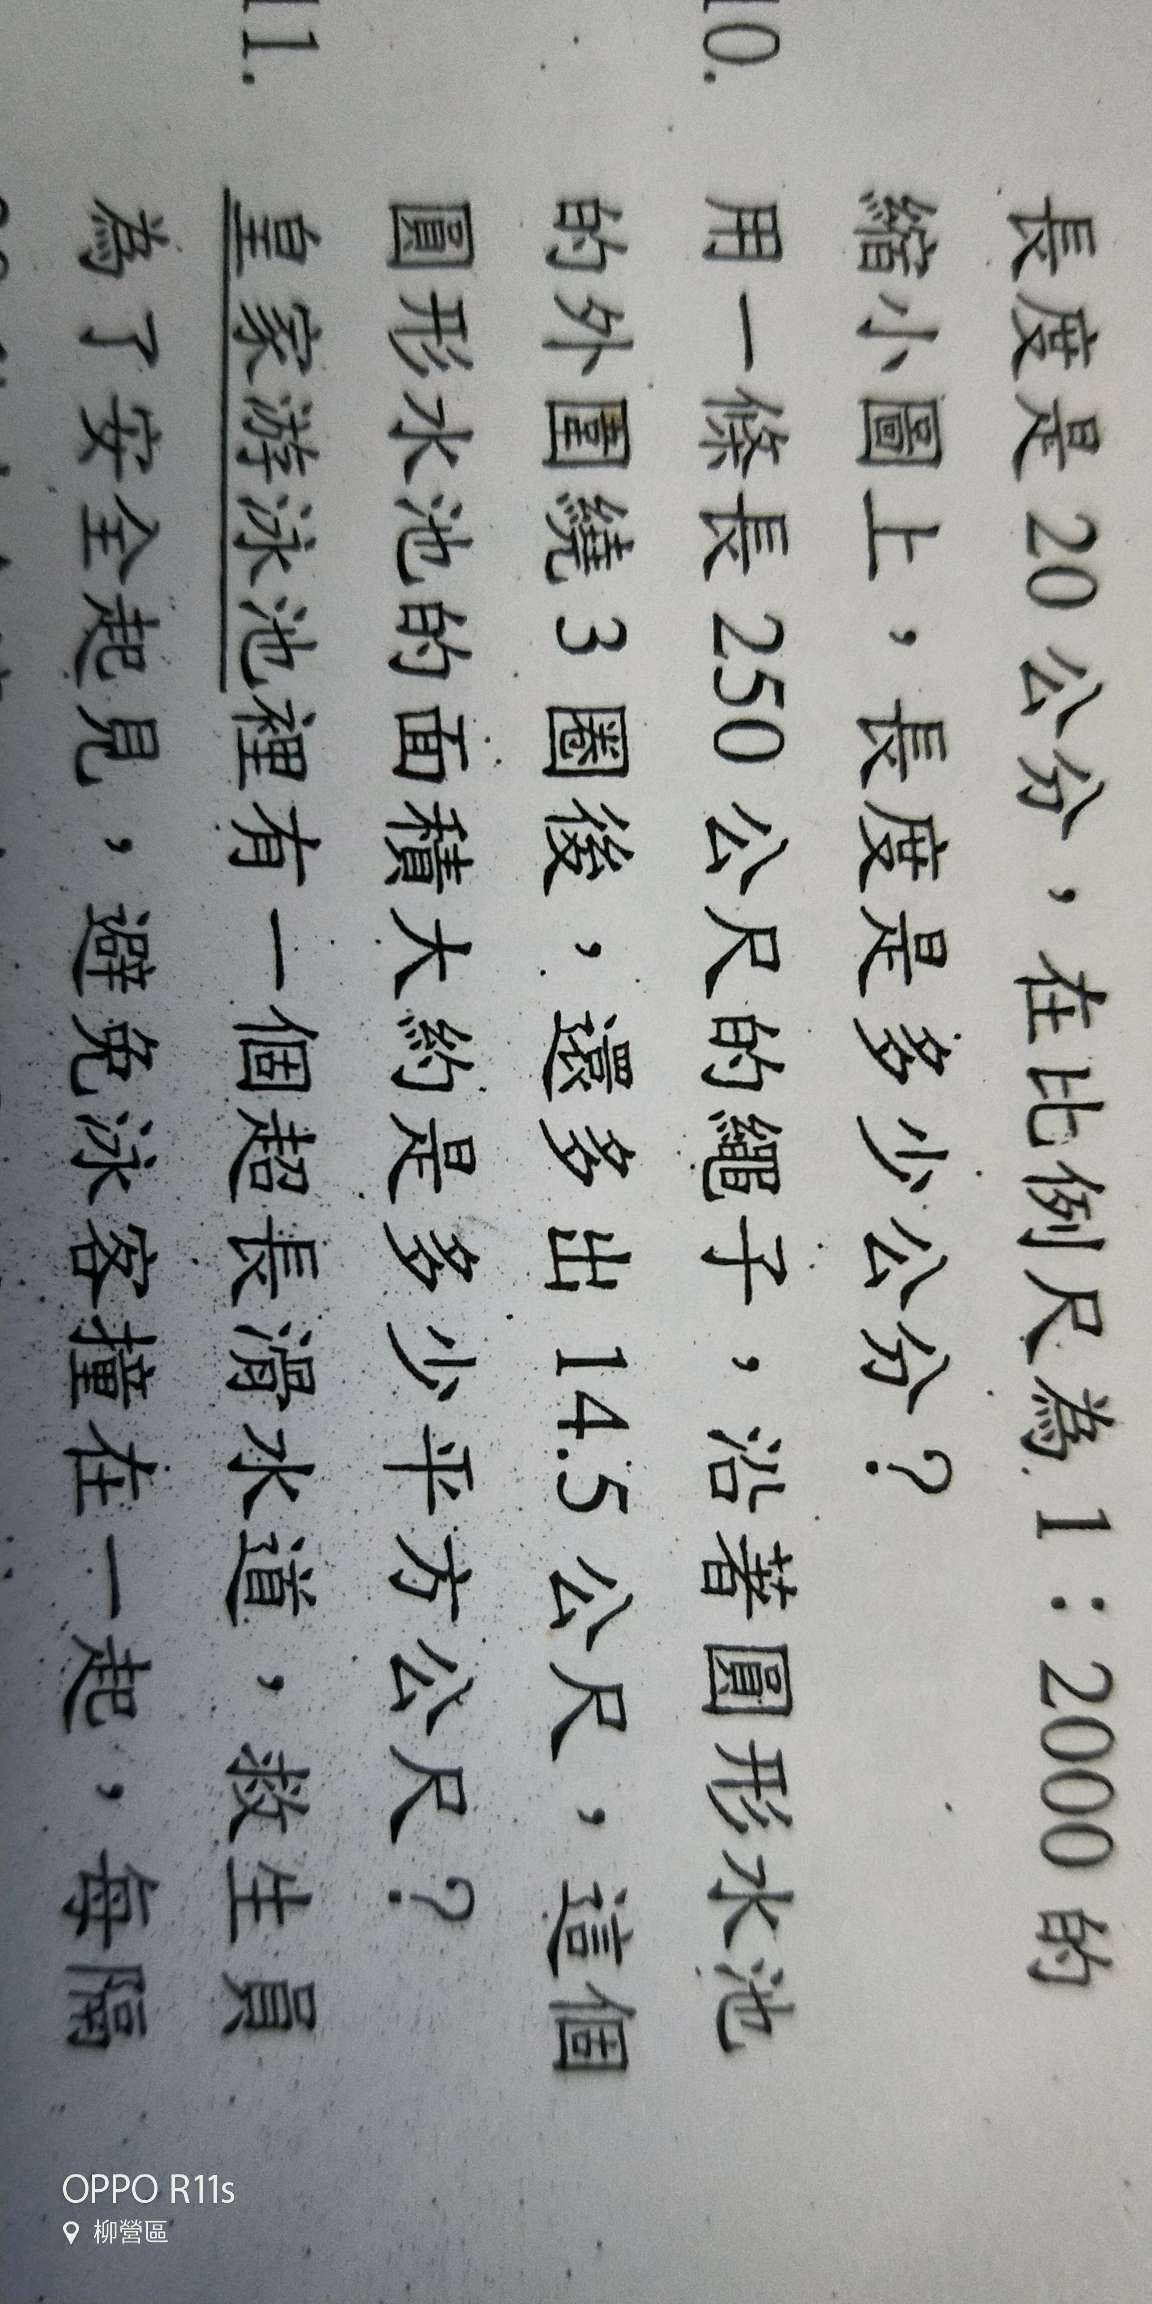 長度是 20 公分，在比例尺為 1：2000 的
縮小圖上，長度是多少公分？
10. 用一條長 250 公尺的繩子，沿著圓形水池
的外圍繞 3 圈後，還多出 14.5 公尺，這個
圓形水池的面積大約是多少平方公尺？
11. 皇家游泳池裡有一個超長滑水道，救生員
為了安全起見，避免泳客撞在一起，每隔
OPPO R11s
柳營區